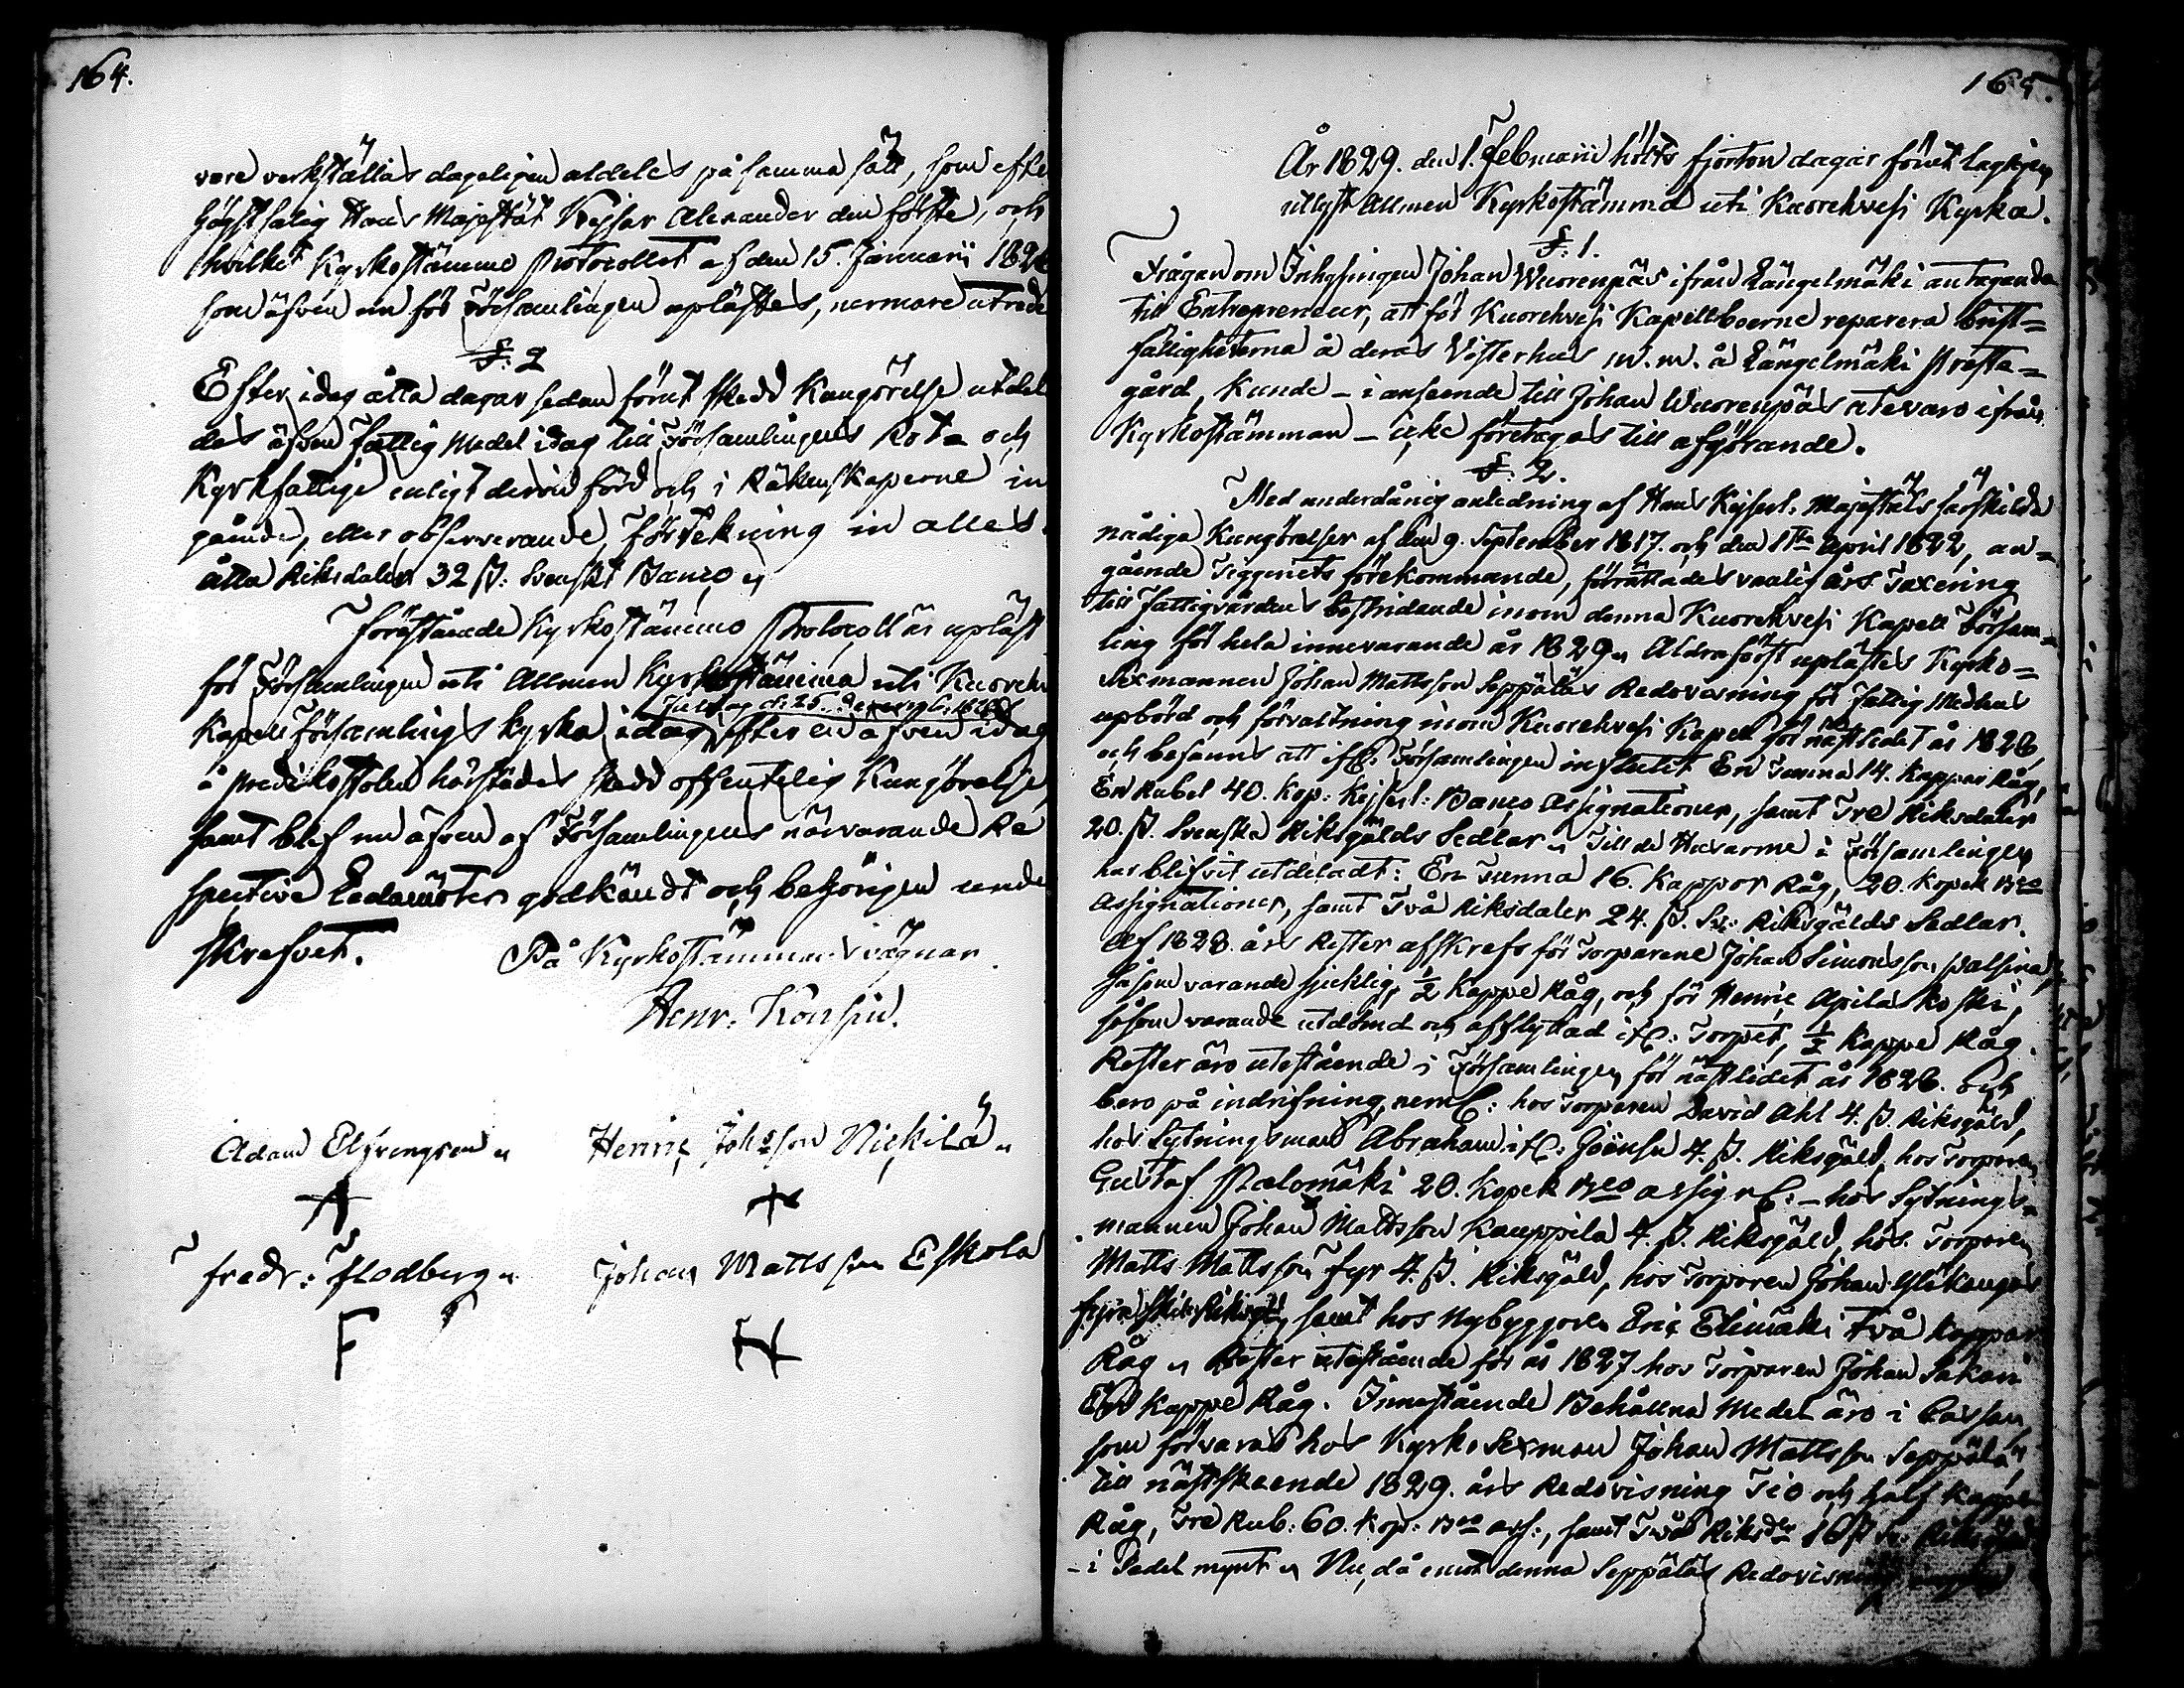 164.
vare verkställas dageligen aldeles på samma sätt, som efter
Högstsalig Hans Majestät Kejsar Alexander den förste, och
hvilket Kyrkostämmo Protocollet af den 15. Januarii 182
som äfven nu för Församlingen uplästes, nermare utreder
§: 2
Efter idag åtta dagar sedan förut skedd Kungörelse utdel
des äfven Fattig Medel idag till Församlingens Rote och
Kyrkfattige enligt deröfver förd och i Räkenskaperne in
gående, eller observerande Förtekning in alles.
åtta Riksdaler 32 ß: Svenskt Banco
Förestående Kyrkostämmo Protocoll är upläst
för Församlingen uti Allmen Kyrkostämma uti Kuoreh
Juldag d: 25. Decemb: 1828
Kapell Församlings kyrka idag, efter en äfven idag
å predikstolen härstädes skedd offentelig Kungörelse,
samt blef nu äfven af Församlingens närvarande Re
spective Ledamöter godkändt och behörigen unde
skrefvet. På Kyrkostämmans vägnar
Henr: Konsin.
Adam Elfvengren Henric Johsson Nickilä
A
Fredr: Flodberg Johan Mattsson Eskola
F H
165.
År 1829. den 1. Februarii hölts fjorton dagar förut lagligen
utlyst Allmen Kyrkostämma uti Kuorehvesi Kyrka.
§: 1.
Frågan om Inhysingen Johan Wuorenpäs ifrån Längelmäki antagande
till Entrepreneur, att för Kuorehvesi Kapellboerne reparera brist=
fälligheterna å deras Visterhus m. m. å Längelmäki Presta=
gård, kunde – i anseende till Johan Wuorenpäs utevaro ifrån
Kyrkostämman – icke företagas till afgörande.
§: 2.
Med underdånig anledning af Hans Kejserl: Majestäts särskilda
nådiga Kungörelser af den 9. September 1817. och den 1ste April 1822, an=
gående Tiggeriets förekommande, förrättades vanlig års Taxering
till Fattigvårdens bestridande inom denna Kuorehvesi Kapell Försam=
ling för hela innevarande år 1829. Aldraförst uplästes Kyrko=
Sexmannen Johan Mattsson Seppäläs Redovisning för Fattig Medlens
upbörd och förvaltning inom Kuorehvesi Kapell för nästledet år 1828,
och befanns att i Församlingen influtit En Tunna 14. Kappar Råg,
En Rubel 40. Kop: Kejserl: Banco Assignationer, samt Tre Riksdaler
20. ß. Svenska Riksgälds Sedlar. Till de Husarme i Församlingen
har blifvit utdeladt: En Tunna 16. Kappor Råg, 20. Kopek Bco
Assignationer, samt Två Riksdaler 24. ß. Sv: Riksgälds Sedlar.
Af 1828. års Rester afskrefs för Torparene Johan Simonsson
såsom varande sjuklig, ½ Kappe Råg, och för Henric Apilakoski,
såsom varande utdömd och afflyttad Torpet, ½ Kappe Råg.
Rester äro utestående i Församlingen för nästledet år 1828. och
bero på indrifning, neml: hos Torparen David Ahl 4. ß. Riksgäld,
hos Sytningsman Abraham 4. ß. Riksgäld, hos Torparen
Gustaf Palomäki 20. Kopek Bco assign: – hos Sytnings=
mannen Johan Mattsson Kauppila 4. ß. Riksgäld, hos Torparen
Matts Mattsson Fyr 4. ß. Riksgäld, hos Torparen Johan
fyra Skill: Riksg: samt hos Nybyggaren Eric Elimäki två Kappar
Råg. Rester utestående för år 1827 hos Torparen Johan Sakari
En Kappe Råg. Innestående Behållna Medel äro i Cassan
som förvaras hos Kyrko Sexman Johan Mattsson Seppälä
till nästskeende 1829. års Redovisning Tio och half Kappe
Råg, Tre Rub: 60. Kop: Bco ass:, samt Två Riksdr 16 ß Sv: Riksgäld
– i Sedel mynt. Nu, då emot denna Seppäläs Redovisning